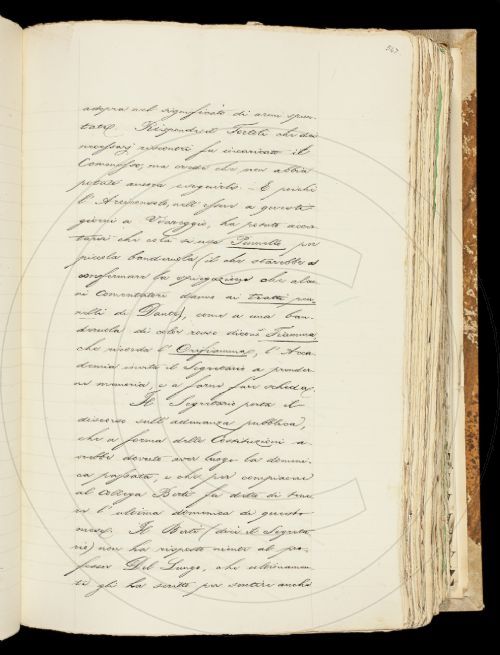 347.
adopra nel significato di armi spun-
tate. Risponde il Fortoli che dei
necessarj riscontri fu incaricato il
Commesso; ma crede che non abbia
potuto ancora eseguirlo. – E poichè
l'Arciconsolo, nell'essere a questi
giorni a Viareggio, ha potuto accer-
tarsi che colà si usa Pennello per
piccola banderuola (il che starebbe a
confermare la spiegazione che alcu-
ni Comentatori danno ai tratti pen-
nelli di Dante), come a una ban-
deruola di color rosso dicono Fiamma,
che ricorda l'Orifiamma, l'Acca-
demia invita il Segretario a prender-
ne memoria, e a farne fare scheda.
Il Segretario porta il
discorso sull'adunanza pubblica,
che a forma delle Costituzioni a-
vrebbe dovuto aver luogo la domeni-
ca passata, e che per compiacere
al collega Berti fu detto di tener-
la l'ultima domenica di questo
mese. Il Berti (dice il Segreta-
rio) non ha risposto niente al pro-
fessor Del Lungo, che ultimamen-
te gli ha scritto per sentire anche